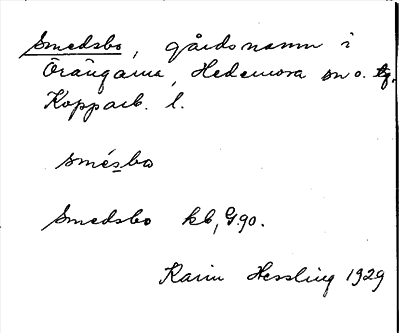 Smedsbo, gårdsnamn i
Örängarna, Hedemora sn o. tg.
Kopparb. l.
smésbo
Smedsbo kb, G.90.
Karin Hessling 1929